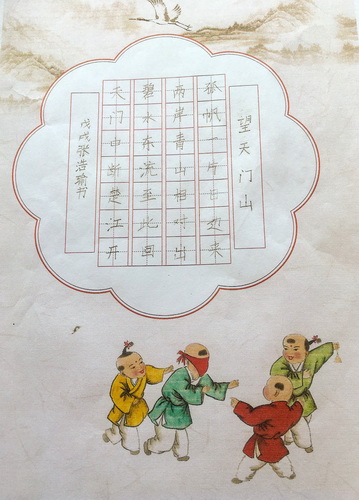 望天门山
天门中断楚江开
碧水东流至此回
两岸青山相对出
孤帆一片日边来
戊戌张浩瑜书